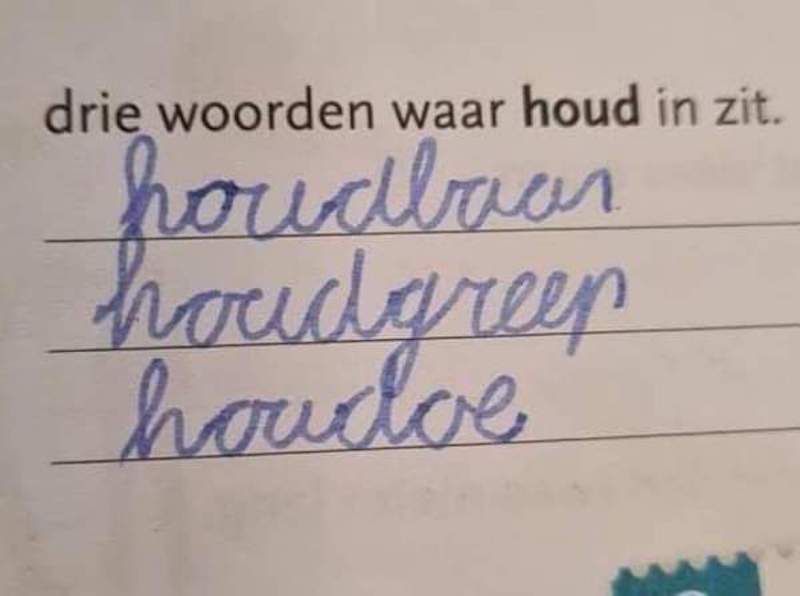 drie woorden waar houd in zit.
houdbaar
houdgreep
houdoe